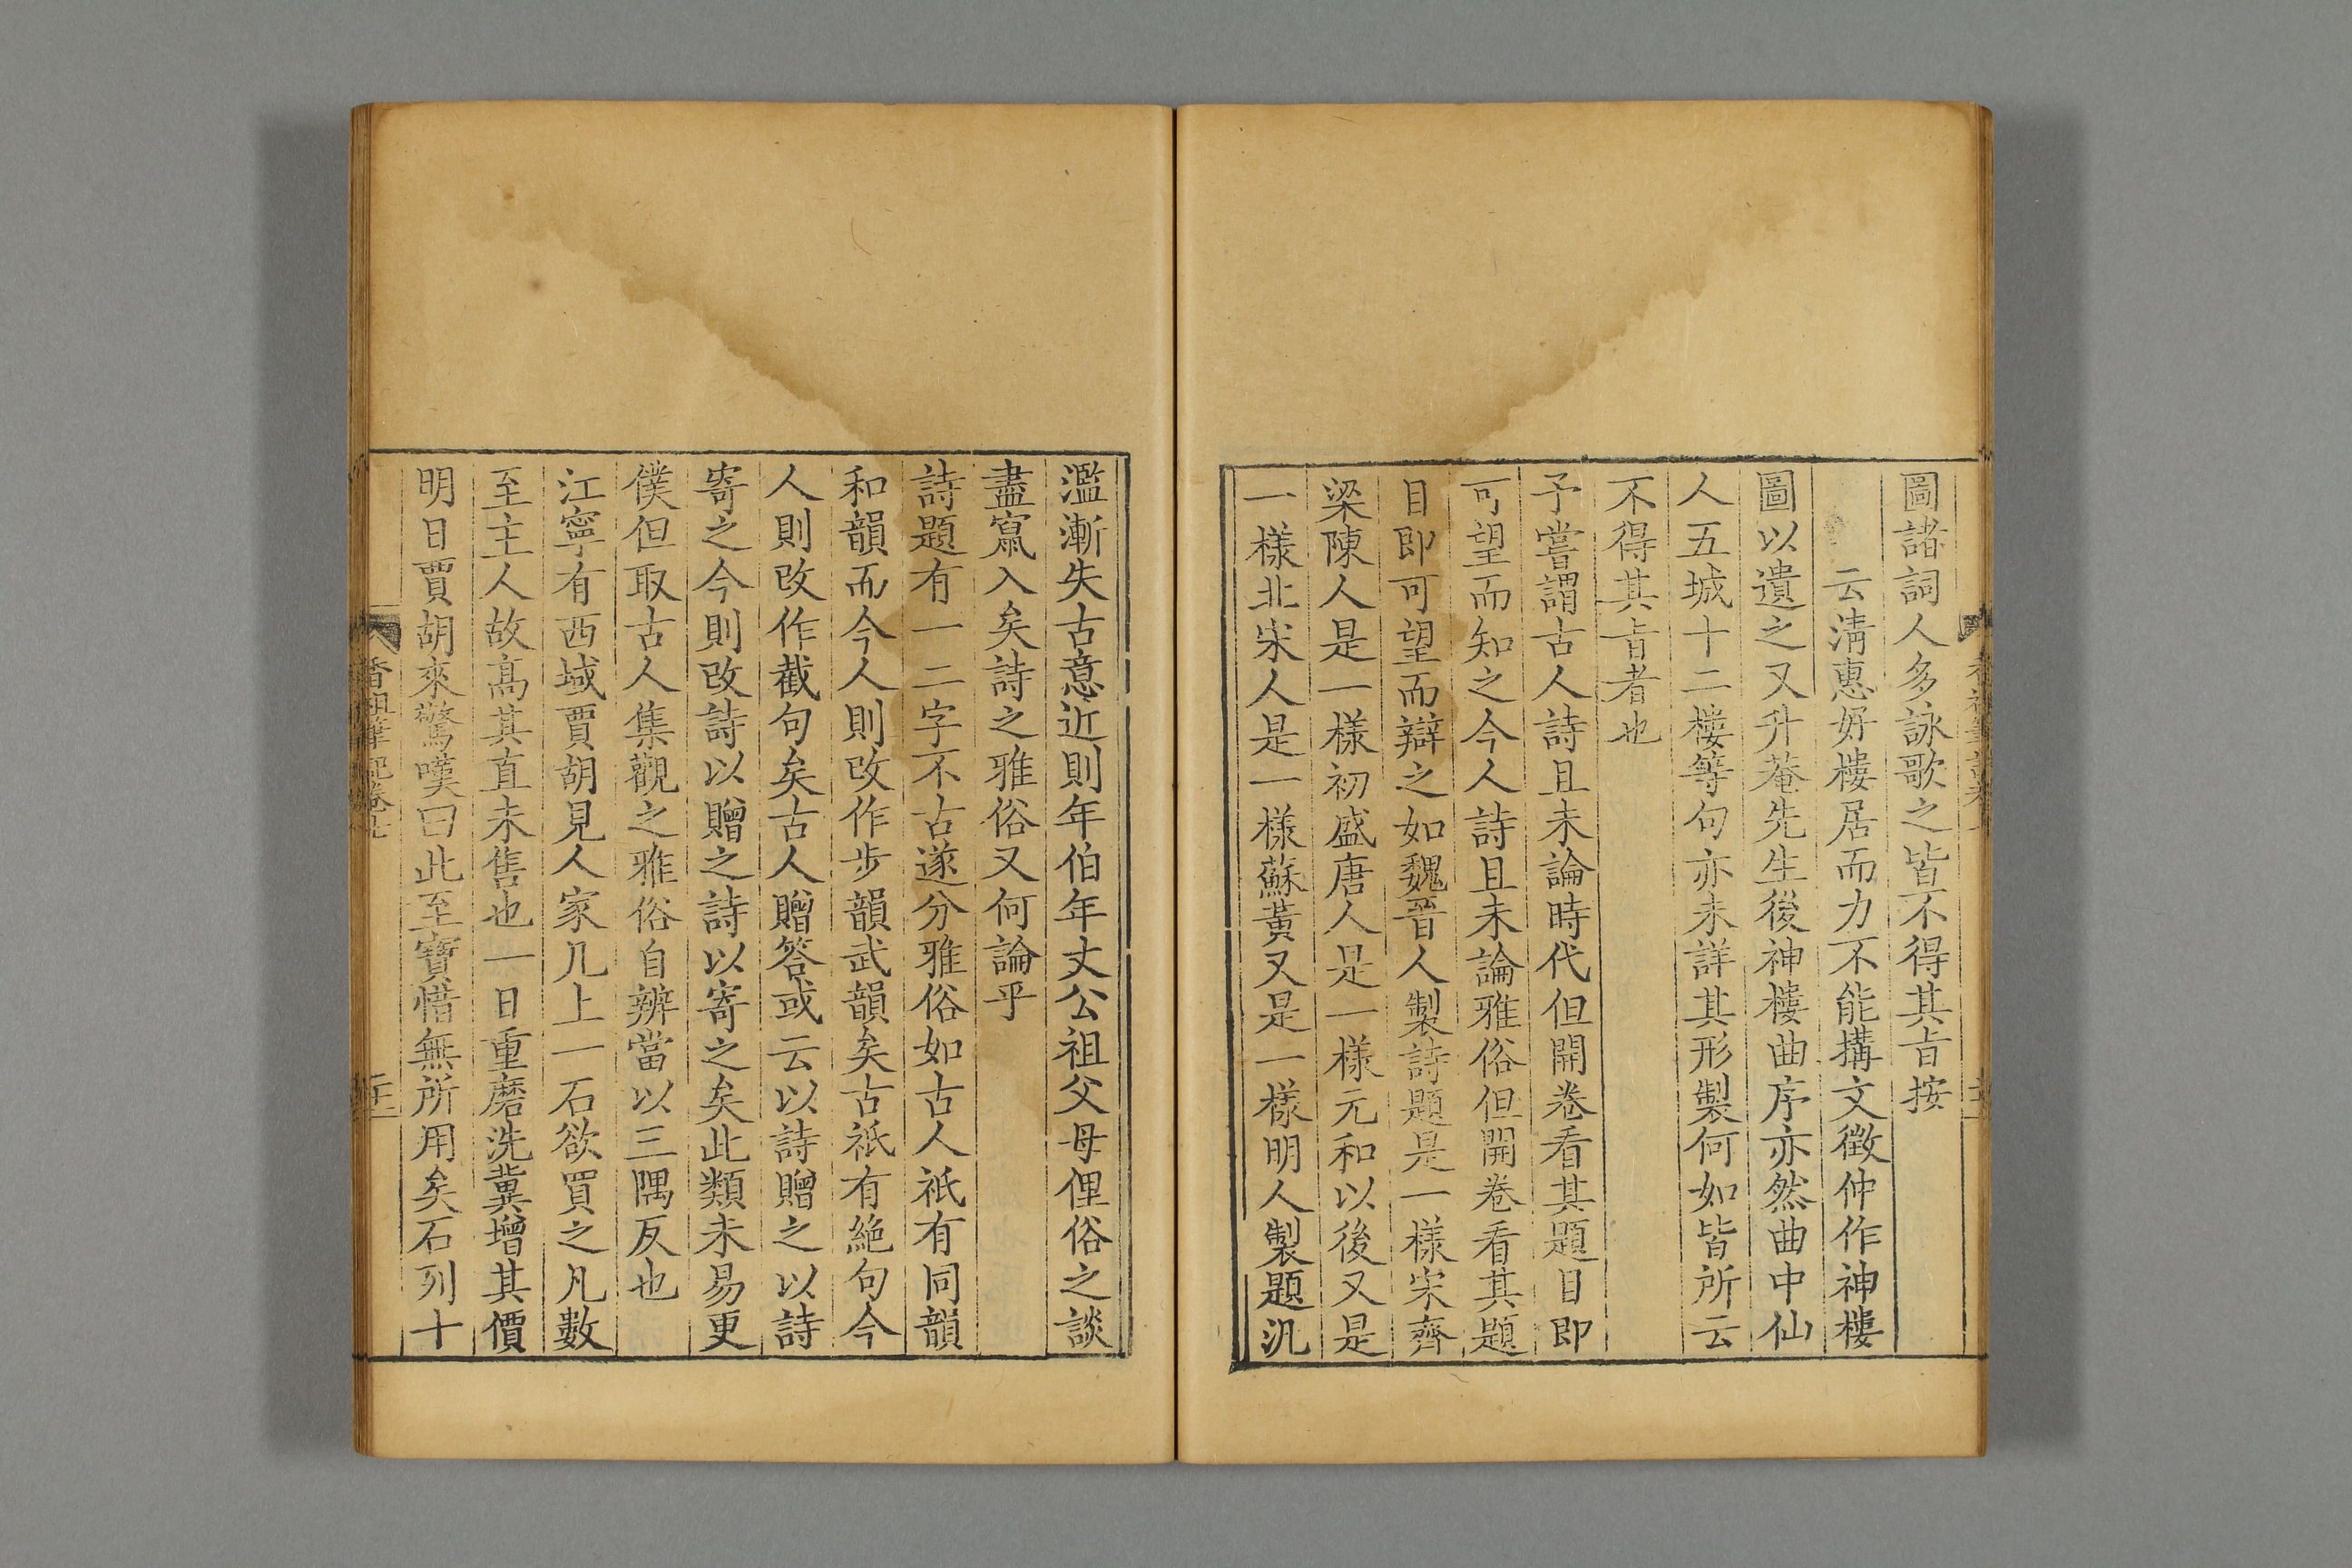 圖諸詞人多詠歌之皆不得其㫖按
云清惠好樓居而力不能搆文徵仲作神樓
圖以遺之又升菴先生後神樓曲序亦然曲中仙
人五城十二樓等句亦未詳其形製何如皆所云
不得其㫖者也
予嘗謂古人詩且未論時代但開卷看其題目即
可望而知之今人詩且未論雅俗但開卷看其題
目即可望而辯之如魏晉人製詩題是一樣宋齊
梁陳人是一樣初盛唐人是一樣元和以後又是
一樣北宋人是一樣蘇黃又是一樣明人製題汎
濫漸失古意近則年伯年丈公祖父母俚俗之談
盡窵入矣詩之雅俗又何論乎
詩題有一二字不古遂分雅俗如古人祇有同韻
和韻而今人則改作步韻武韻矣古祇有絕句今
人則改作截句矣古人贈答或云以詩贈之以詩
寄之今則改詩以贈之詩以寄之矣此類未易更
僕但取古人集觀之雅俗自辨當以三隅反也
江寧有西域賈胡見人家几上一石欲買之凡數
至主人故高其直未售也一日重磨洗兾增其價
明日賈胡來驚嘆曰此至寶惜無所用矣石列十
香祖筆記卷七